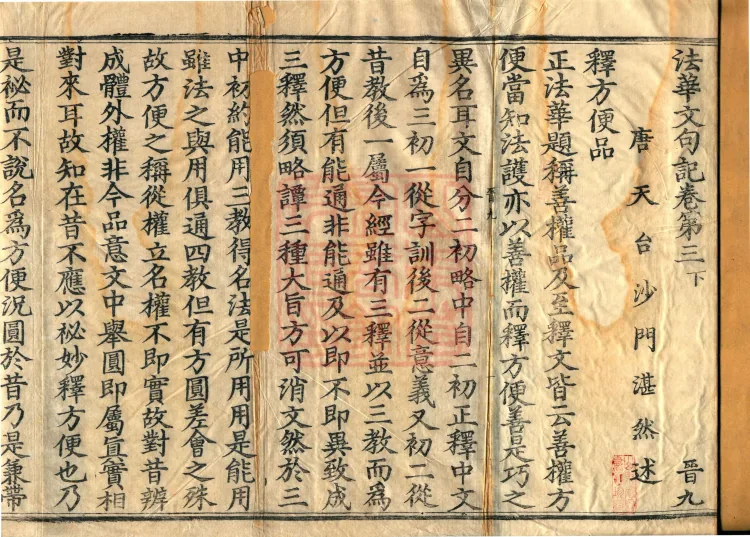 法華文句記卷第三下 晉九
唐天台沙門湛然述
釋方便品
正法華題稱善權品及至釋文皆云善權方
便當知法護亦以善權而釋方便善是巧之
異名耳文自分二初略中自二初正釋中文
自爲三初一從字訓後二從意義又初二從
昔教後一屬今經雖有三釋並以三教而爲
方便但有能通非能通及以即不即異致成
三釋然須略譚三種大旨方可消文然於三
中初約能用三教得名法是所用用是能用
雖法之與用俱通四教但有方圓差會之殊
故方便之稱從權立名權不即實故對昔辨
成體外權非今品意文中舉圓即屬眞實相
對來耳故知在昔不應以祕妙釋方便也乃
是祕而不說名爲方便況圓於昔乃是兼帶